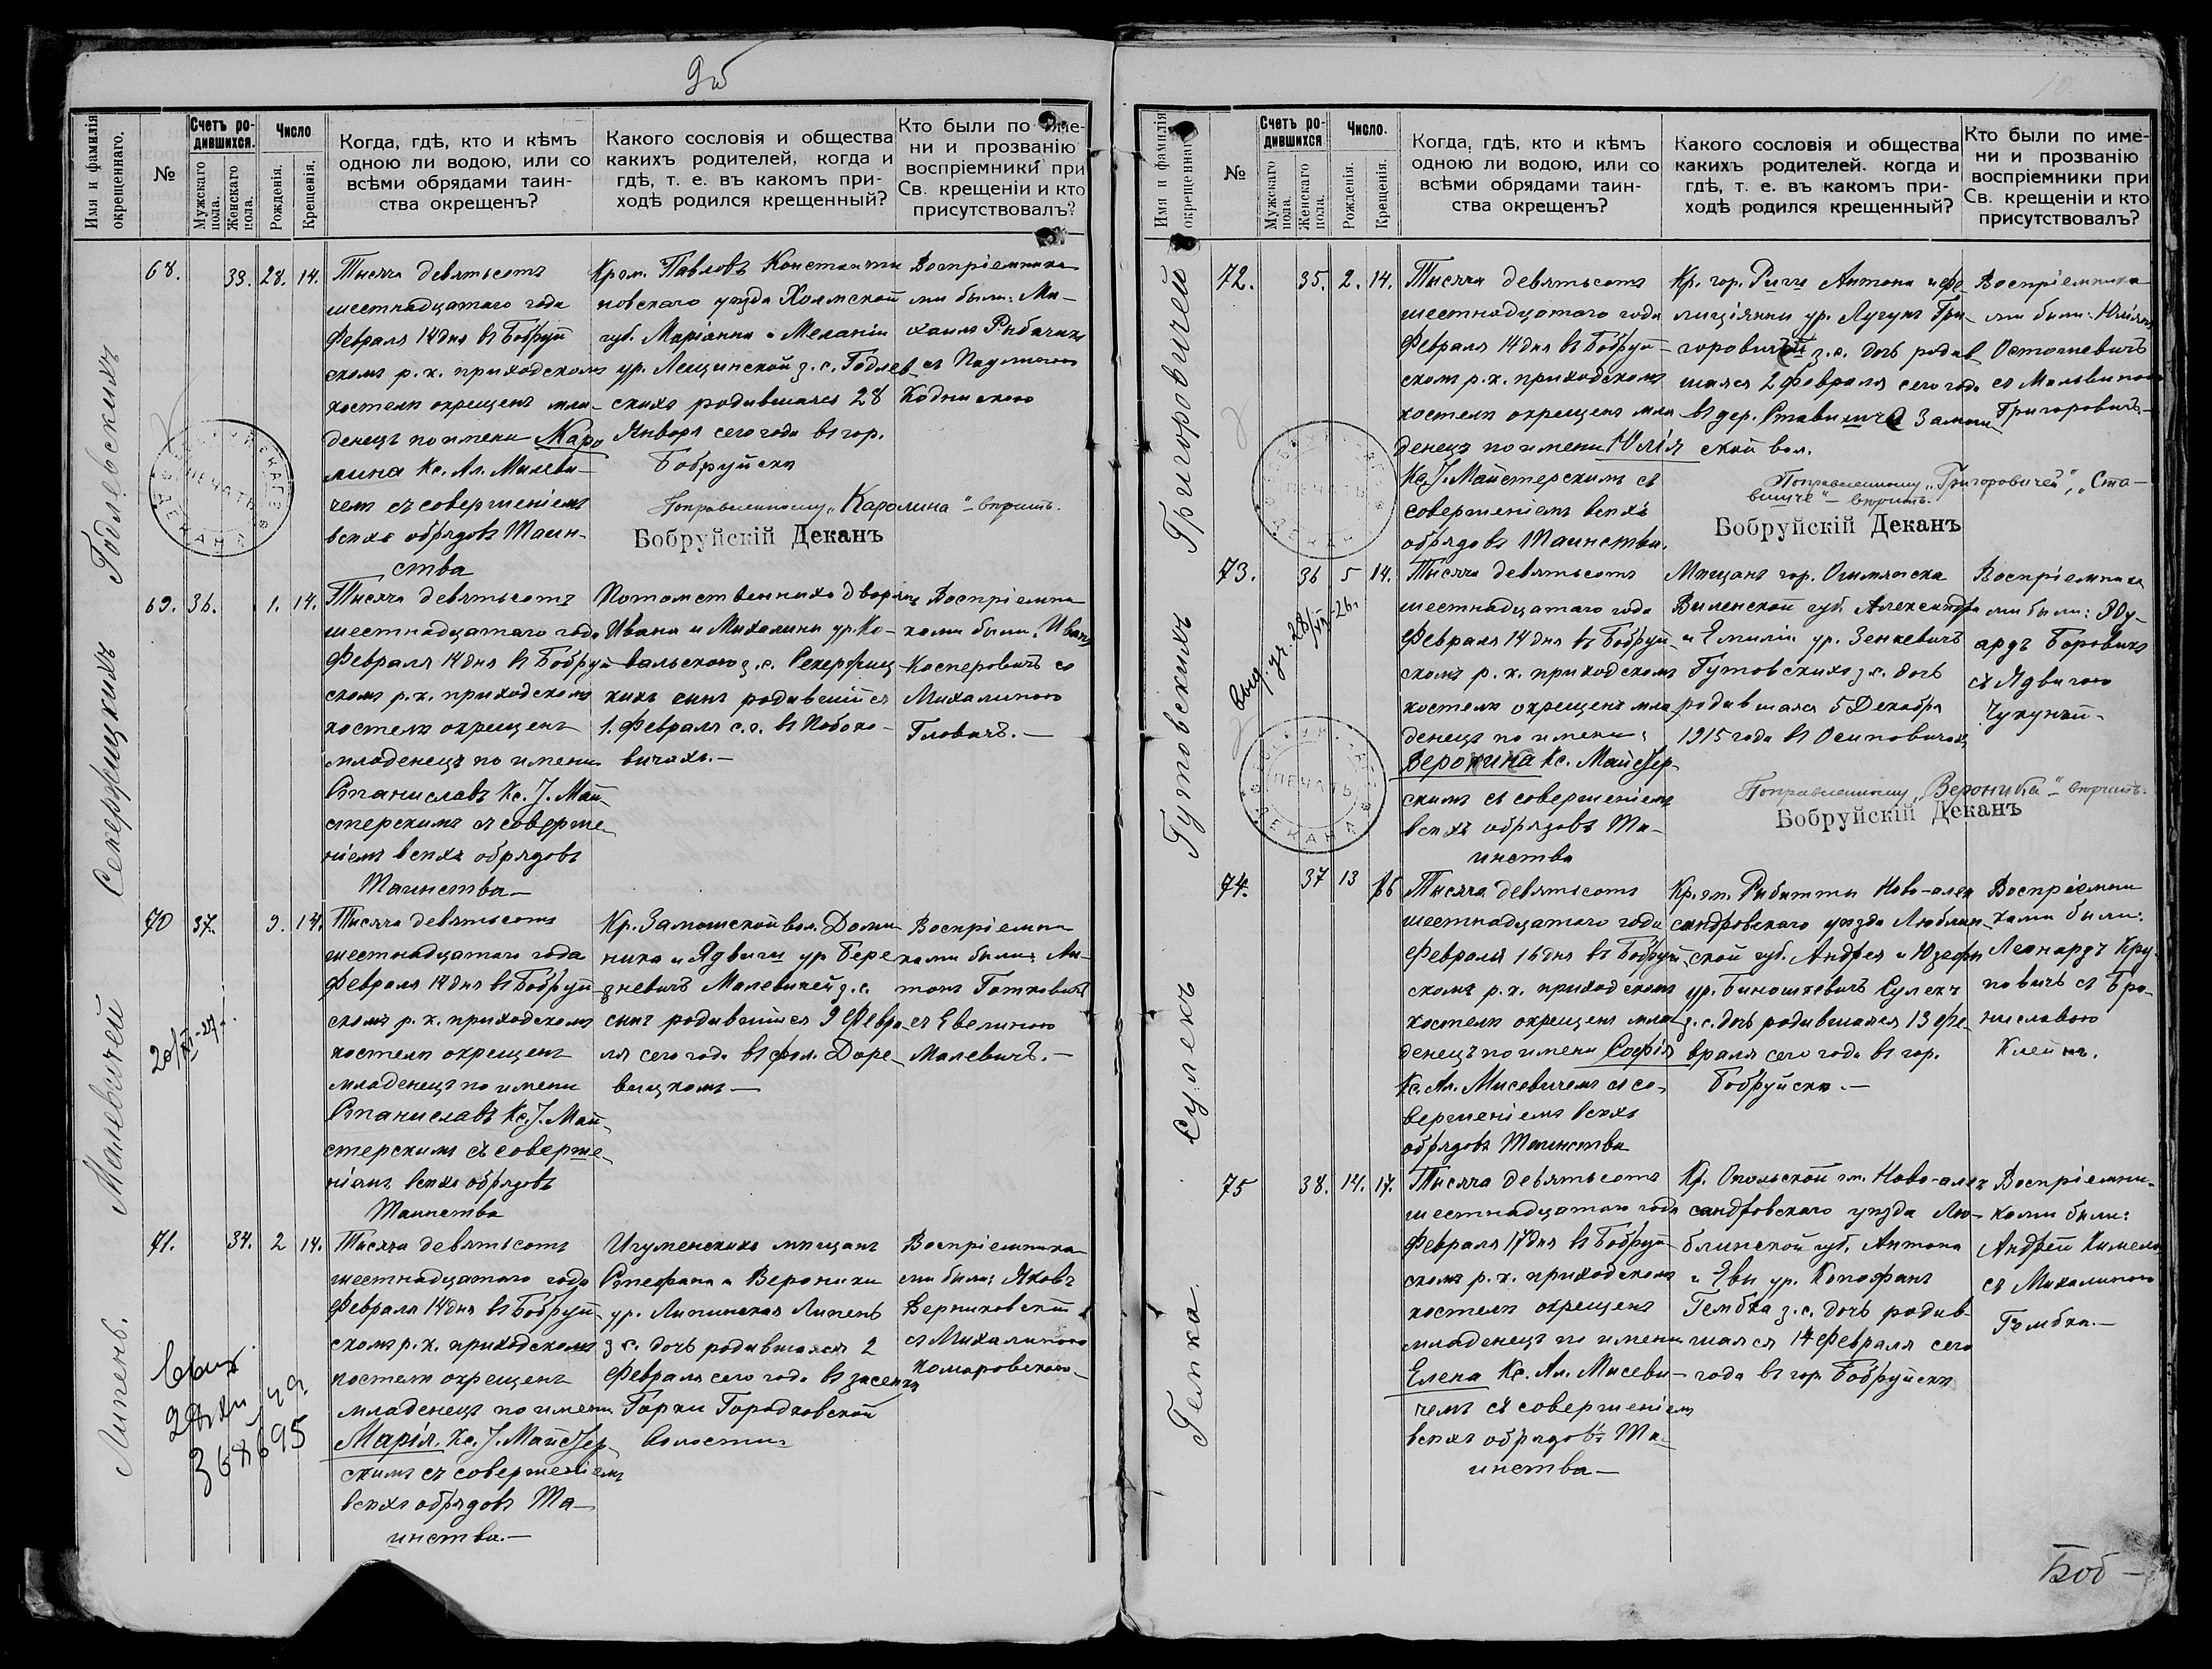 9об
Имя и фамилія окрещеннаго.
№
Счетъ ро-
дившихся.
Мужскаго пола.
Женскаго пола.
Число
Рожденія.
Крещенія.
Когда, гдѣ, кто и кѣмъ
одною ли водою, или со
всѣми обрядами таин-
ства окрещенъ?
Какого сословія и общества
какихъ родителей, когда и
гдѣ, т. е. въ какомъ при-
ходѣ родился крещенный?
Кто были по име-
ни и прозванію
воспріемники при
Св. крещеніи и кто
присутствовалъ?
Годлевскихъ
68. 33. 28. 14.
Тысяча девятьсотъ
шестнадцатаго года
Февраля 14 дня въ Бобруй
скомъ р. к. приходскомъ
костелѣ окрещенъ мла-
денецъ по имени Каро
лина Кс. Ал. Мисеви-
чемъ съ совершеніемъ
всѣхъ обрядовъ Таин-
ства
Кр. гм. Павловъ Константи
новскаго уѣзда Холмской
губ. Маріанна и Меланіи
ур. Лещинской з. с. Годлев
скихъ родившаяся 28
Января сего года въ гор.
Бобруйскѣ
Поправленному „Каролина" – вѣрить.
Бобруйскій Деканъ
Воспріемника
ми были: Ми-
хаилъ Рыбачекъ
съ Паулиною
ПЕЧАТЬ
ДЕКАНА
Секерфицкихъ
69. 36. 1. 14.
Тысяча девятьсотъ
шестнадцатаго года
Февраля 14 дня въ Бобруй
скомъ р. к. приходскомъ
костелѣ окрещенъ
младенецъ по имени
Станиславъ Кс. J. Май-
стерскимъ съ соверше
ніемъ всѣхъ обрядовъ
Таинства –
Потомственныхъ дворянъ
Ивана и Михалины ур. Ко-
вальскою з. с. Секерфиц
кихъ сынъ родившійся
1. Февраля с. г. въ Побоко-
вичахъ. –
Воспріемни
ками были: Иванъ
Касперовичъ съ
Михалиною
Гловачъ. –
Малевичей
70 37. 9. 14.
Тысяча девятьсотъ
шестнадцатаго года
Февраля 14 дня въ Бобруй
скомъ р. к. приходскомъ
костелѣ окрещенъ
младенецъ по имени
Станиславъ Кс. J. Май-
стерскимъ съ соверше-
ніемъ всѣхъ обрядовъ
Таинства
Кр. Замошской вол. Доми
ника и Ядвиги ур. Бере
зневичъ Малевичей з. с.
сынъ родившійся 9 Февра
ля сего года въ фол. Доре
вицкомъ –
Воспріемни
ками были: Ан-
тонъ Готковичъ
съ Евелиною
Малевичъ. –
Липень.
71. 34. 2 14.
Тысяча девятьсотъ
шестнадцатаго года
Февраля 14 дня въ Бобруй
скомъ р. к. приходскомъ
костелѣ окрещенъ
младенецъ по имени
Марія. Кс. J. Майстер-
скимъ съ совершеніемъ
всѣхъ обрядовъ Та-
инства. –
Игуменскихъ мѣщанъ
Стефана и Вероники
ур. Липинская Липень
з. с. дочь родившаяся 2
Февраля сего года въ засенкѣ
Горки Городковской
Волости
Воспріемника
ми были: Яковъ
Верниковскій
съ Михалиною
Комаровскою –
368695
Имя и фамилія окрещеннаго
№
Счетъ ро-
дившихся
Мужскаго пола.
Женскаго пола.
Число.
Рожденія.
Крещенія.
Когда, гдѣ, кто и кѣмъ
одною ли водою, или со
всѣми обрядами таин-
ства окрещенъ?
Какого сословія и общества
какихъ родителей. когда и
гдѣ, т. е. въ какомъ при-
ходѣ родился крещенный?
Кто были по име-
ни и прозванію
воспріемники при
Св. крещеніи и кто
присутствовалъ?
Григоровичей
72. 35. 2. 14.
Тысяча девятьсотъ
шестнадцатаго года
Февраля 14 дня въ Бобруй-
скомъ р. к. приходскомъ
костелѣ окрещенъ мла
денецъ по имени Юлія
Кс. J. Майстерскимъ съ
совершеніемъ всѣхъ
обрядовъ Таинства.
Кр. гор. Риги Антона и Фе
лиціянны ур. Лучунъ Гри-
горовичей з. с. дочь родив
шаяся 2 Февраля сего года
въ дер. Ставище Замош
ской вол.
Поправленному „Григоровичей", „Ста-
вище" – вѣрить.
Бобруйскій Деканъ
Воспріемника
ми были: Юліянъ
Остасевичъ
съ Мальвиною
Григоровичъ. –
ПЕЧАТЬ
ДЕКАНА
Гутовскихъ
73. 36 5 14.
Тысяча девятьсотъ
шестнадцатаго года
Февраля 14 дня въ Бобруй-
скомъ р. к. приходскомъ
костелѣ окрещенъ мла
денецъ по имени:
Вероника Кс. Майстер-
скимъ съ совершеніемъ
всѣхъ обрядовъ Та-
инства
Мѣщанъ гор. Ошмянска
Виленской губ. Александра
и Эмиліи ур. Зенкевичъ
Гутовскихъ з. с. дочь
родившаяся 5 Декабря
1915 года въ Осиповичахъ
Поправленному „Вероника" – вѣрить.
Бобруйскій Деканъ
Воспріемника
ми были: Эду-
ардъ Боровикъ
съ Ядвигою
ПЕЧАТЬ
ДЕКАНА
Сулекъ
74. 37 13 16
Тысяча девятьсотъ
шестнадцатаго года
Февраля 16 дня въ Бобруй
скомъ р. к. приходскомъ
костелѣ окрещенъ мла
денецъ по имени Софія
Кс. Ал. Мисевичемъ съ со-
вершеніемъ всѣхъ
обрядовъ Таинства
Кр. гм. Рыбитты Ново-алек
сандровскаго уѣзда Люблин
ской губ. Андрея и Юзефы
ур. Биношкевичъ Сулекъ
з. с. дочь родившаяся 13 Фе
враля сего года въ гор.
Бобруйскѣ. –
Воспріемни
ками были:
Леонардъ Кру-
повичъ съ Бро-
ниславою
Клейнъ.
Гепка.
75 38. 14. 17.
Тысяча девятьсотъ
шестнадцатаго года
Февраля 17 дня въ Бобруй
скомъ р. к. приходскомъ
костелѣ окрещенъ
младенецъ по имени
Елена Кс. Ал. Мисеви-
чемъ съ совершеніемъ
всѣхъ обрядовъ Та-
инства –
Кр. Опольской гм. Ново-алек
сандровскаго уѣзда Лю-
блинской губ. Антона
и Эвы ур. Копофанъ
Гембка з. с. дочь родив-
шаяся 14 Февраля сего
года въ гор. Бобруйскѣ
Воспріемни-
ками были:
Андрей Химела
съ Михалиною
Гембка. –
Боб –